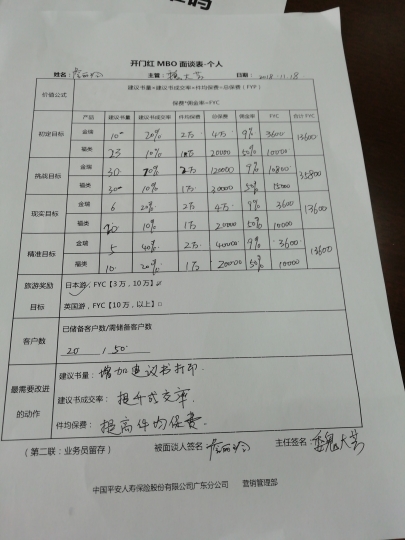 开门红 MBO 面谈表-个人
姓名: 主管: 魏大芸 日期: 2018.11.18
价值公式 建议书量*建议书成交率*件均保费=总保费(FYP)
保费*佣金率=FYC
产品 建议书量 建议书成交率 件均保费 总保费 佣金率 FYC 合计 FYC
初定目标 金瑞 10 20% 2万 4万 9% 3600 13600
福类 25 10% 1万 20000 50% 10000
挑战目标 金瑞 30 20% 2万 9% 10800 35800
福类 30 10% 1万 30000 50% 15000
现实目标 金瑞 6 20% 2万 4万 9% 3600 13600
福类 20 10% 1万 20000 50% 10000
精准目标 金瑞 5 40% 2万 40000 9% 3600 13600
福类 10 20% 1万 20000 50% 10000
旅游奖励目标 日本游,FYC【3万,10万】
英国游,FYC【10万,以上】
客户数 已储备客户数/需储备客户数
20 / 50
最需要改进的动作 建议书量: 增加建议书打印.
建议书成交率: 提升成交率.
件均保费: 提高件均保费.
(第二联:业务员留存) 被面谈人签名: 主任签名: 魏大芸
中国平安人寿保险股份有限公司广东分公司 营销管理部